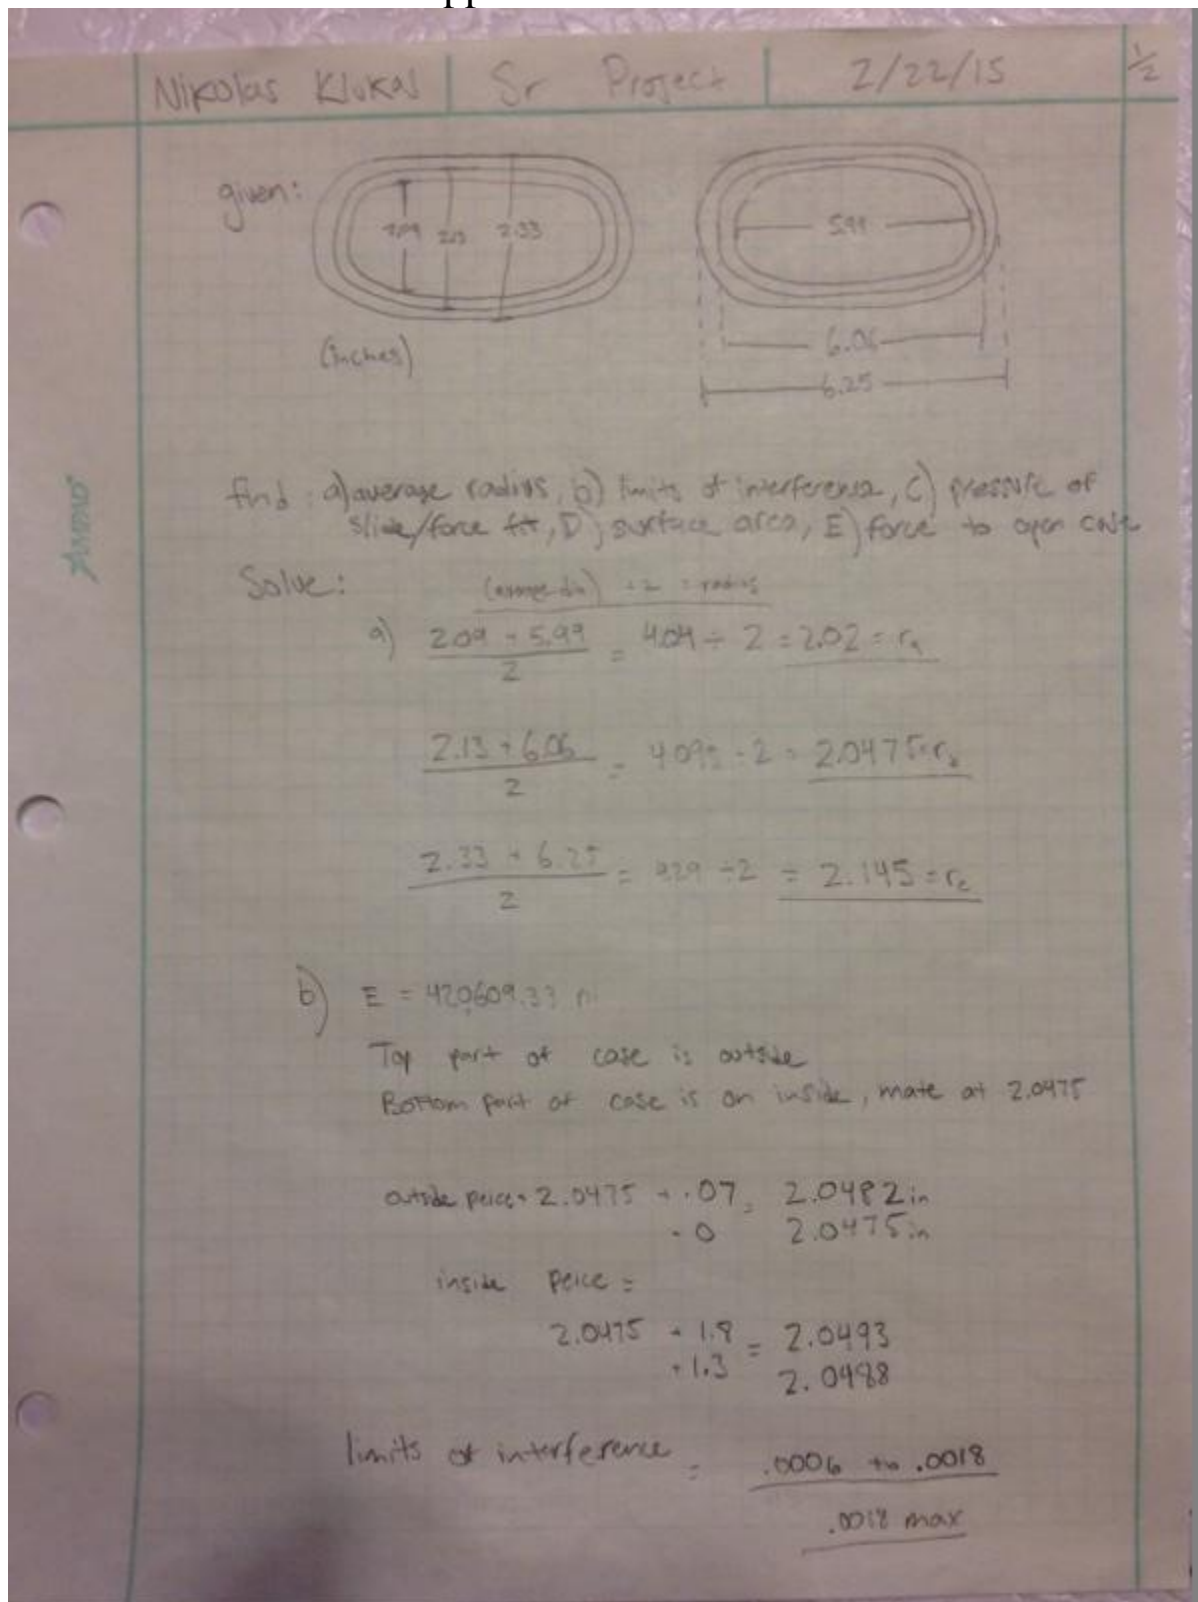 Nikolas Klukal Sr Project 2/22/15 1/2
given:
2.09 2.13 2.33
5.99
(inches)
6.06
6.25
find: a) average radius, b) limits of interference, C) pressure of
slide/force fit, D) surface area, E) force to open case
Solve:
(average dia) ÷ 2 = radius
a) 2.09 + 5.99 / 2 = 4.04 ÷ 2 = 2.02 = ra
2.13 + 6.06 / 2 = 4.095 ÷ 2 = 2.0475 = rb
2.33 + 6.25 / 2 = 4.29 ÷ 2 = 2.145 = rc
b) E = 420,609.33
Top part of case is outside
Bottom part of case is on inside, mate at 2.0475
outside peice = 2.0475 + .07 = 2.0482in
- 0 2.0475in
inside peice =
2.0475 + 1.8 = 2.0493
+ 1.3 2.0488
limits of interference = .0006 to .0018
.0018 max